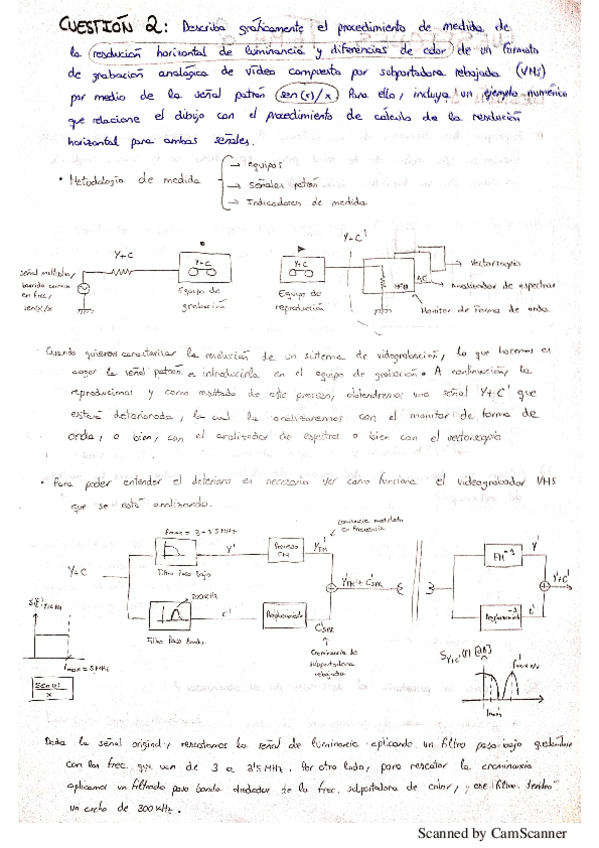 CUESTIÓN 2: Describa gráficamente el procedimiento de medida de
la resolución horizontal de luminancia y diferencias de color de un formato
de grabación analógica de vídeo compuesto por subportadora rebajada (VHS)
por medio de la señal patrón sen(x)/x Para ello, incluya un ejemplo numérico
que relacione el dibujo con el procedimiento de cálculo de la resolución
horizontal para ambas señales.
· Metodología de medida
→ equipos
→ Señales patrón
→ Indicadores de medida
Y+C
Y+C
señal multiburst,
barrido continuo
en frec,
sen(x)/x
Equipo de
grabación
Y+C'
Y+C
Equipo de
reproducción
→ Vectorscopio
Analizador de espectros
Monitor de forma de onda
· Cuando queremos caracterizar la resolución de un sistema de videograbación, lo que hacemos es
coger la señal patrón e introducirla en el equipo de grabación. A continuación, la
reproducimos y como resultado de este proceso, obtendremos una señal Y+C' que
estará deteriorada, la cual la analizaremos con el monitor de forma de
onda, o bien, con el analizador de espectros o bien con el vectorscopio
· Para poder entender el deterioro es necesario ver como funciona el videograbador VHS
que se está analizando.
Luminancia modulada
en frecuencia
fmax = 3-3'5 MHz
Y'
Proceso
FM
Y'FM
Filtro Paso Bajo
Y+C
Y'FM + C'SPR
FM⁻¹
Y'
Y'+C'
300 KHz
C'
Desplazamiento
C'SPR
Filtro Paso Banda
Crominancia de
subportadora
rebajada
C'
fmax = 5 MHz
sen(x)
x
Dada la señal original, rescatamos la señal de luminancia aplicando un filtro paso bajo quedándose
con las frec. que van de 3 a 3'5 MHz. Por otro lado, para rescatar la crominancia
aplicamos un filtrado paso banda alrededor de la frec. subportadora de color, y ese filtro tendrá
un ancho de 300 KHz.
Scanned by CamScanner